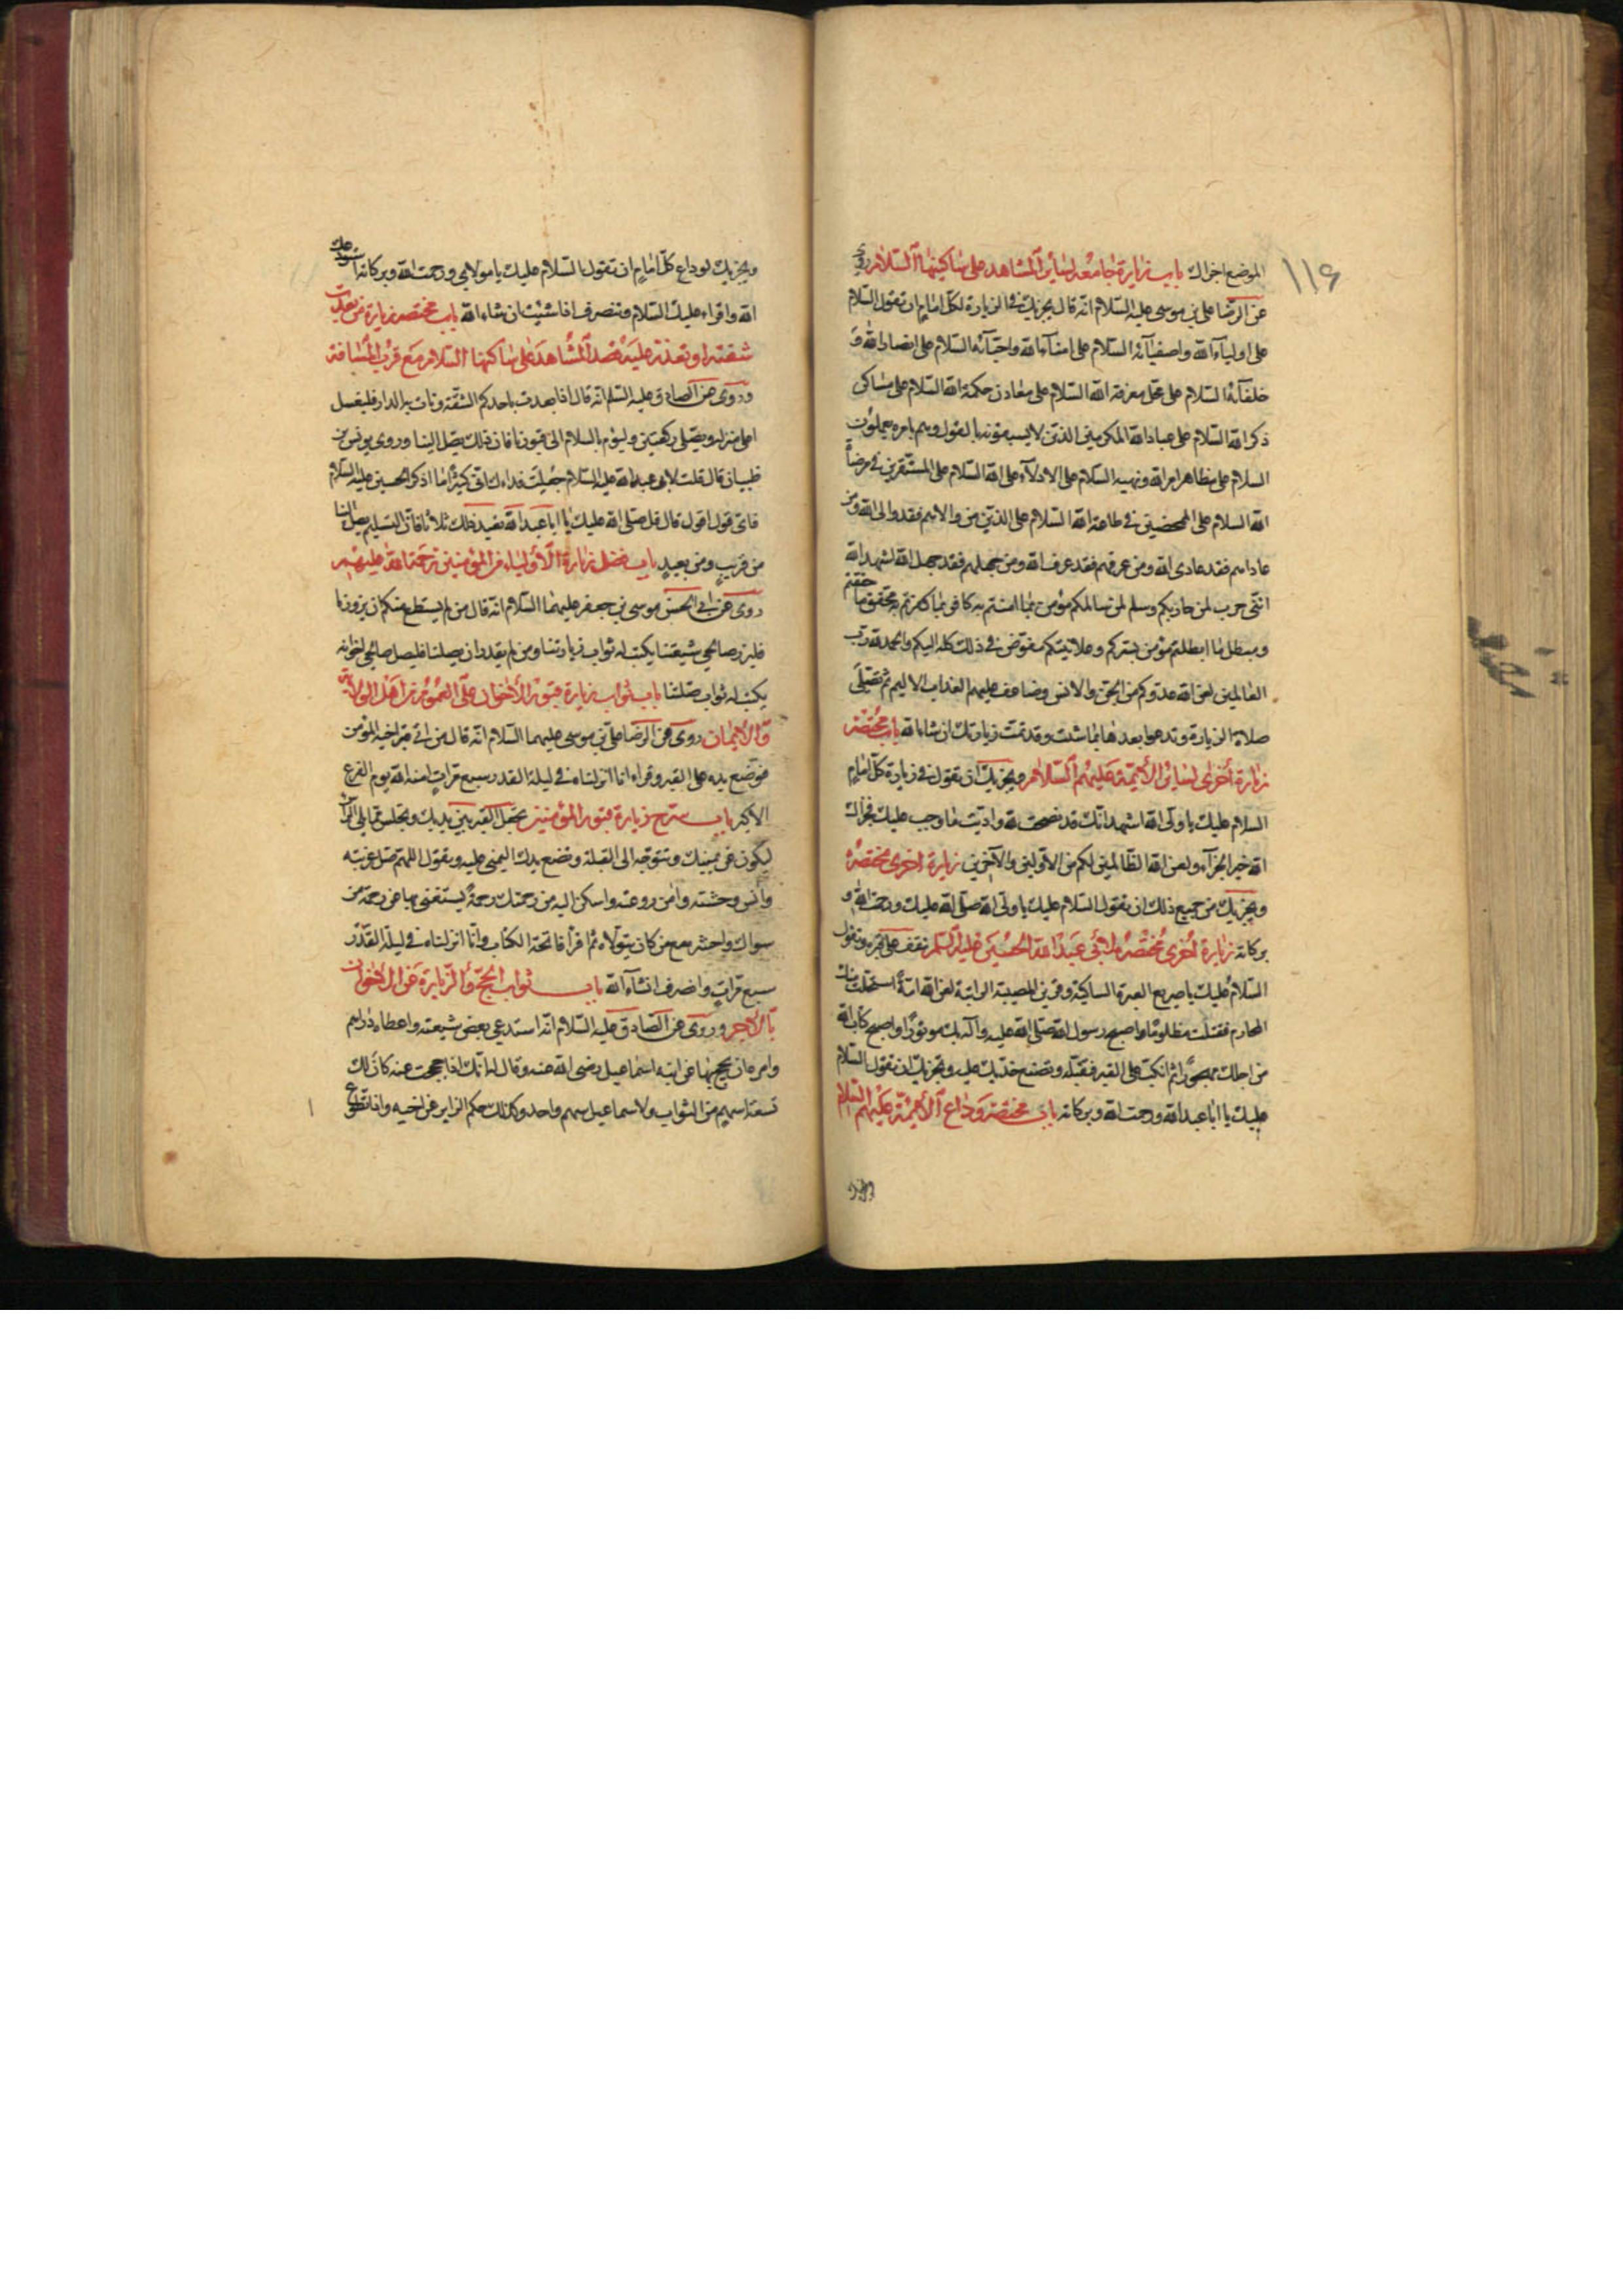 ١١٦
الموضع اجزاك باب زيارة جامعة لسائر المشاهد على ساكنيها السلام روى
عن الرضا على بن موسى عليه السلام انه قال يجزيك في الزيارة لكل امام ان تقول السلام
على اولياء الله واصفيائه السلام على امناء الله واحبائه السلام على انصار الله و
خلفائه السلام على محل معرفة الله السلام على معادن حكمة الله السلام على مساكن
ذكر الله السلام على عباد الله المكرمين الذين لا يسبقونه بالقول وهم بامره يعملون
السلام على مظاهر امر الله ونهيه السلام على الادلاء على الله السلام على المستقرين في مرضاة
الله السلام على الممحضين في طاعة الله السلام على الذين من والاهم فقد والى الله ومن
عاداهم فقد عادى الله ومن عرفهم فقد عرف الله ومن جهلهم فقد جهل الله اشهد الله
انني حرب لمن حاربكم وسلم لمن سالمكم مؤمن بما امنتم به كافر بما كفرتم به محقق ما حققتم
ومبطل لما ابطلتم مؤمن بسركم وعلانيتكم مفوض في ذلك كله اليكم والحمد لله رب
العالمين لعن الله عدوكم من الجن والانس وضاعف عليهم العذاب الاليم ثم تصلى
صلاة الزيارة وتدعوا بعدها بما شئت وقد تمت زيارتك ان شاء الله باب مختصر
زيارة أخرى لسائر الأئمة عليهم السلام ويجزيك ان تقول في زيارة كل امام
السلام عليك يا ولى الله اشهد انك قد نصحت لله واديت ما وجب عليك فجزاك
الله خير الجزاء ولعن الله الظالمين لكم من الاولين والآخرين زيارة اخرى مختصرة
ويجزيك من جميع ذلك ان تقول السلام عليك يا ولى الله صلى الله عليك ورحمت الله و
بركاته زيارة أخرى مختصرة لأبي عبد الله الحسين عليه السلم تقف على قبره وتقول
السلام عليك يا صريع العبرة الساكبة وقرين المصيبة الراتبة لعن الله امة استحلت منك
المحارم فقتلت مظلوما واصبح رسول الله صلى الله عليه وآله بك موتورا واصبح كتاب الله
من اجلك مهجورا ثم انكب على القبر فقبله وتضع خديك عليه ويجزيك ان تقول السلام
عليك يا ابا عبد الله ورحمت الله وبركاته باب مختصر وداع الأئمة عليهم السلام
ويجزيك
ويجزيك لوداع كل امام ان تقول السلام عليك يا مولاي ورحمت الله وبركاته استودعك
الله واقراء عليك السلام وتنصرف اذا شئت ان شاء الله باب مختصر زيارة من بعدت
شقته او تعذر عليه قصد المشاهد على ساكنها السلام مع قرب المسافة
وروى عن الصادق عليه السلم انه قال اذا بعدت باحدكم الشقة ونات به الدار فليغسل
اعلى منزله ويصلى ركعتين وليؤم بالسلام الى قبورنا فان ذلك يصل الينا وروى يونس بن
ظبيان قال قلت لابى عبد الله عليه السلام جعلت فداءك انى كثيرا ما اذكر الحسين عليه السلام
فاى قول اقول قال قل صلى الله عليك يا ابا عبد الله تعيد ذلك ثلاثا فان التسليم يصل الينا
من قريب ومن بعيد باب فضل زيارة الأولياء من المؤمنين رحمة الله عليهم
روى عن ابى الحسن موسى بن جعفر عليهما السلام انه قال من لم يستطع منكم ان يزورنا
فليزر صالحى شيعتنا يكتب له ثواب زيارتنا ومن لم يقدر ان يصلنا فليصل صالحى اخوانه
يكتب له ثواب صلتنا باب ثواب زيارة قبور الأخوان على العموم من أهل الولاية
والأيمان روى عن الرضا على بن موسى عليهما السلام انه قال من اتى قبر اخيه المؤمن
فوضع يده على القبر وقراء انا انزلناه في ليلة القدر سبع مرات امنه الله يوم الفزع
الاكبر باب شرح زيارة قبور المؤمنين تجعل القبر بين يديك وتجلس مما يلى الراس
ليكون عن يمينك وتتوجه الى القبلة وتضع يدك اليمنى عليه ويقول اللهم صل غربته
وآنس وحشته وامن روعته واسكن اليه من رحمتك رحمة يستغنى بها عن رحمة من
سواك واحشره مع من كان يتولاه ثم اقرأ فاتحة الكتاب وانا انزلناه في ليلة القدر
سبع مرات وانصرف انشاء الله باب ثواب الحج والزيارة عن الاخوان
بالاجر وروى عن الصادق عليه السلام انه استدعى بعض شيعته واعطاه دراهم
وامره ان يحج بها عن ابنه اسماعيل رضى الله عنه وقال له انك اذا حججت عنه كان لك
تسعة اسهم من الثواب ولاسماعيل سهم واحد وكذلك حكم الزاير عن اخيه وان تطوع